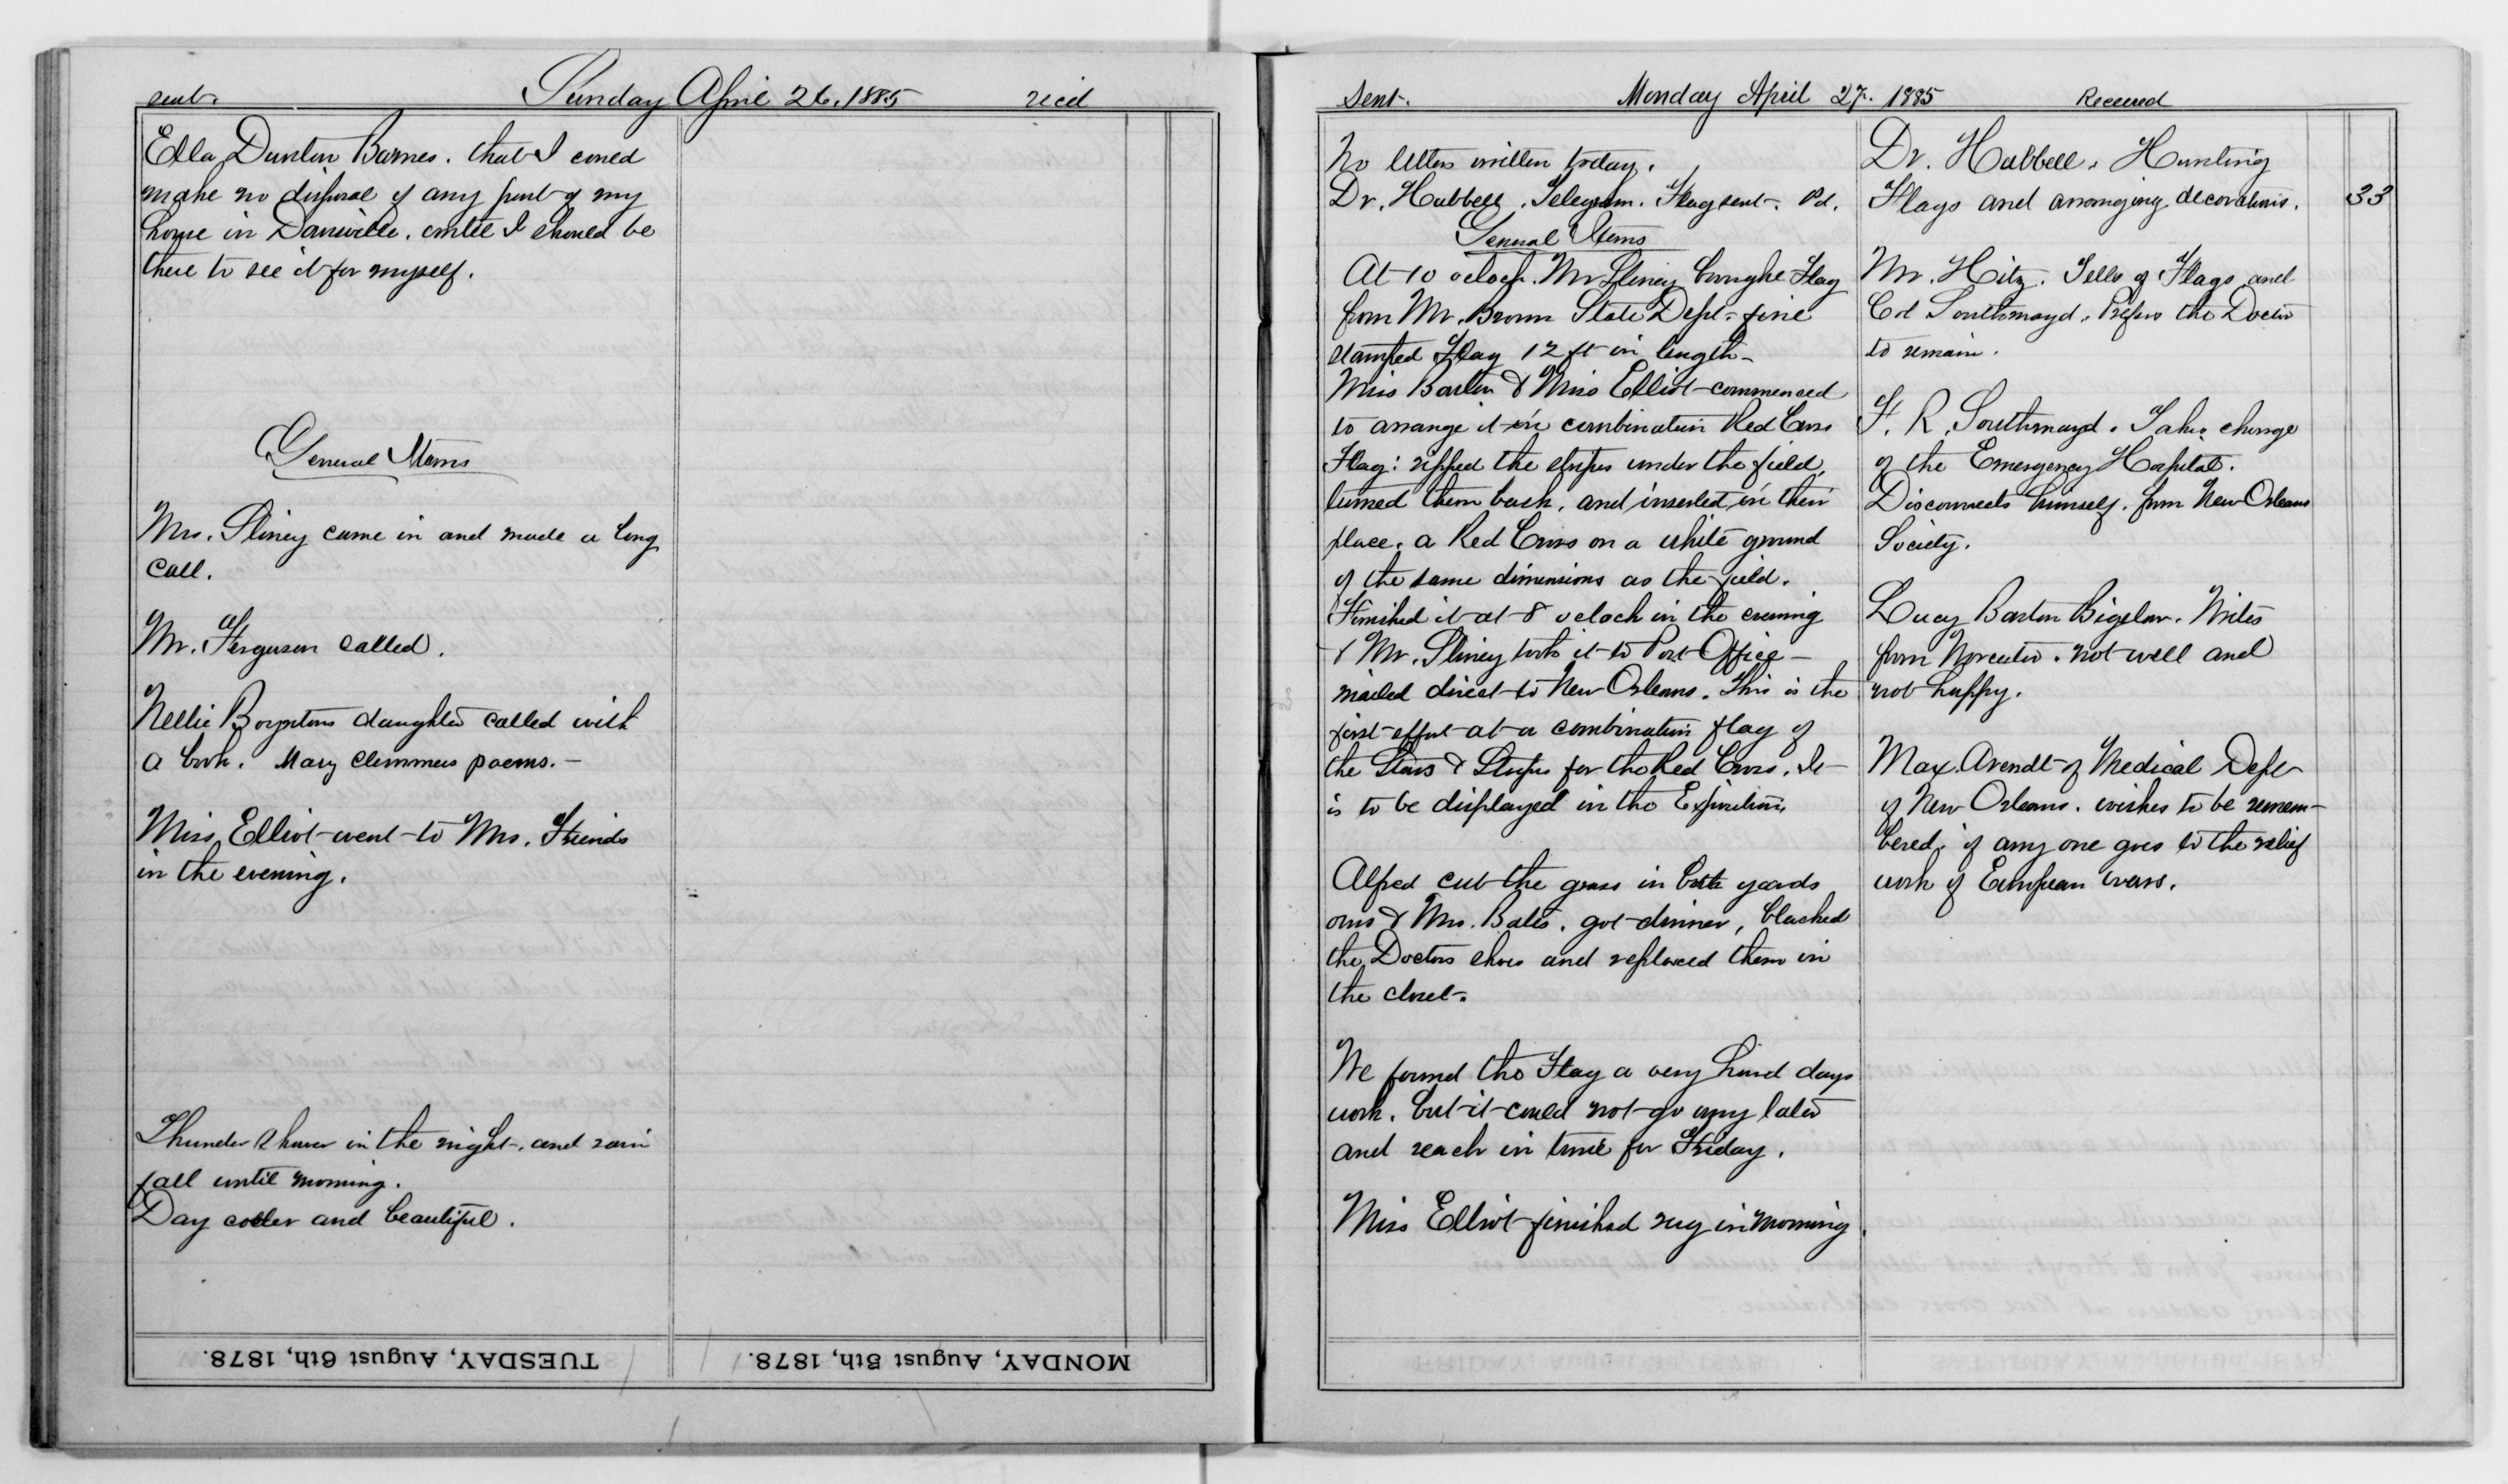 sent. Sunday April 26, 1885 rec'd
Ella Duntin Barnes. that I could
make no disposal of any part of my
house in Dansville. until I should be
there to see it for myself.
General Items
Mrs. Pliney came in and made a long
call.
Mr. Ferguson called.
Nellie Boyntons daughter called with
a book. Mary Clemmers poems. —
Miss Elliot went to Mrs. Friends
in the evening.
Thunder shower in the night, and rain
fall until morning.
Day cooler and beautiful.
TUESDAY, August 6th, 1878. MONDAY, August 5th, 1878.
Sent. Monday April 27. 1885 Received
33
No letters written today.
Dr. Hubbell. Telegram. Flag sent. Pd.
General Items
At 10 oclock. Mr Pliney brought Flag
from Mr. Brown State Dept. fine
stamped Flag 12 ft in length —
Miss Barton & Miss Elliot commenced
to arrange it in combination Red Cross
Flag: ripped the stripes under the field,
turned them back, and inserted in their
place. a Red Cross on a white ground
of the same dimensions as the field.
Finished it at 8 oclock in the evening
& Mr. Pliney took it to Post Office —
mailed direct to New Orleans. This is the
first effort at a combination flag of
the Stars & Stripes for the Red Cross. It
is to be displayed in the Exposition.
Alfred cut the grass in both yards
ours & Mrs. Bales. got dinner, blacked
the Doctors shoes and replaced them in
the closet.
We found the Flag a very hard days
work. but it could not go any later
and reach in time for Friday.
Miss Elliot finished rug in morning.
Dr. Hubbell. Hunting
Flags and arranging decorations.
Mr. Hitz. Tells of Flags and
Col Southmayd. Prefers the Doctor
to remain.
F. R. Southmayd. Takes charge
of the Emergency Hospital.
Disconnects himself. from New Orleans
Society.
Lucy Barton Bigelow. Writes
from Worcester. not well and
not happy.
Max. Arendt of Medical Dept
of New Orleans. wishes to be remem-
bered. if any one goes to the relief
work of European wars.